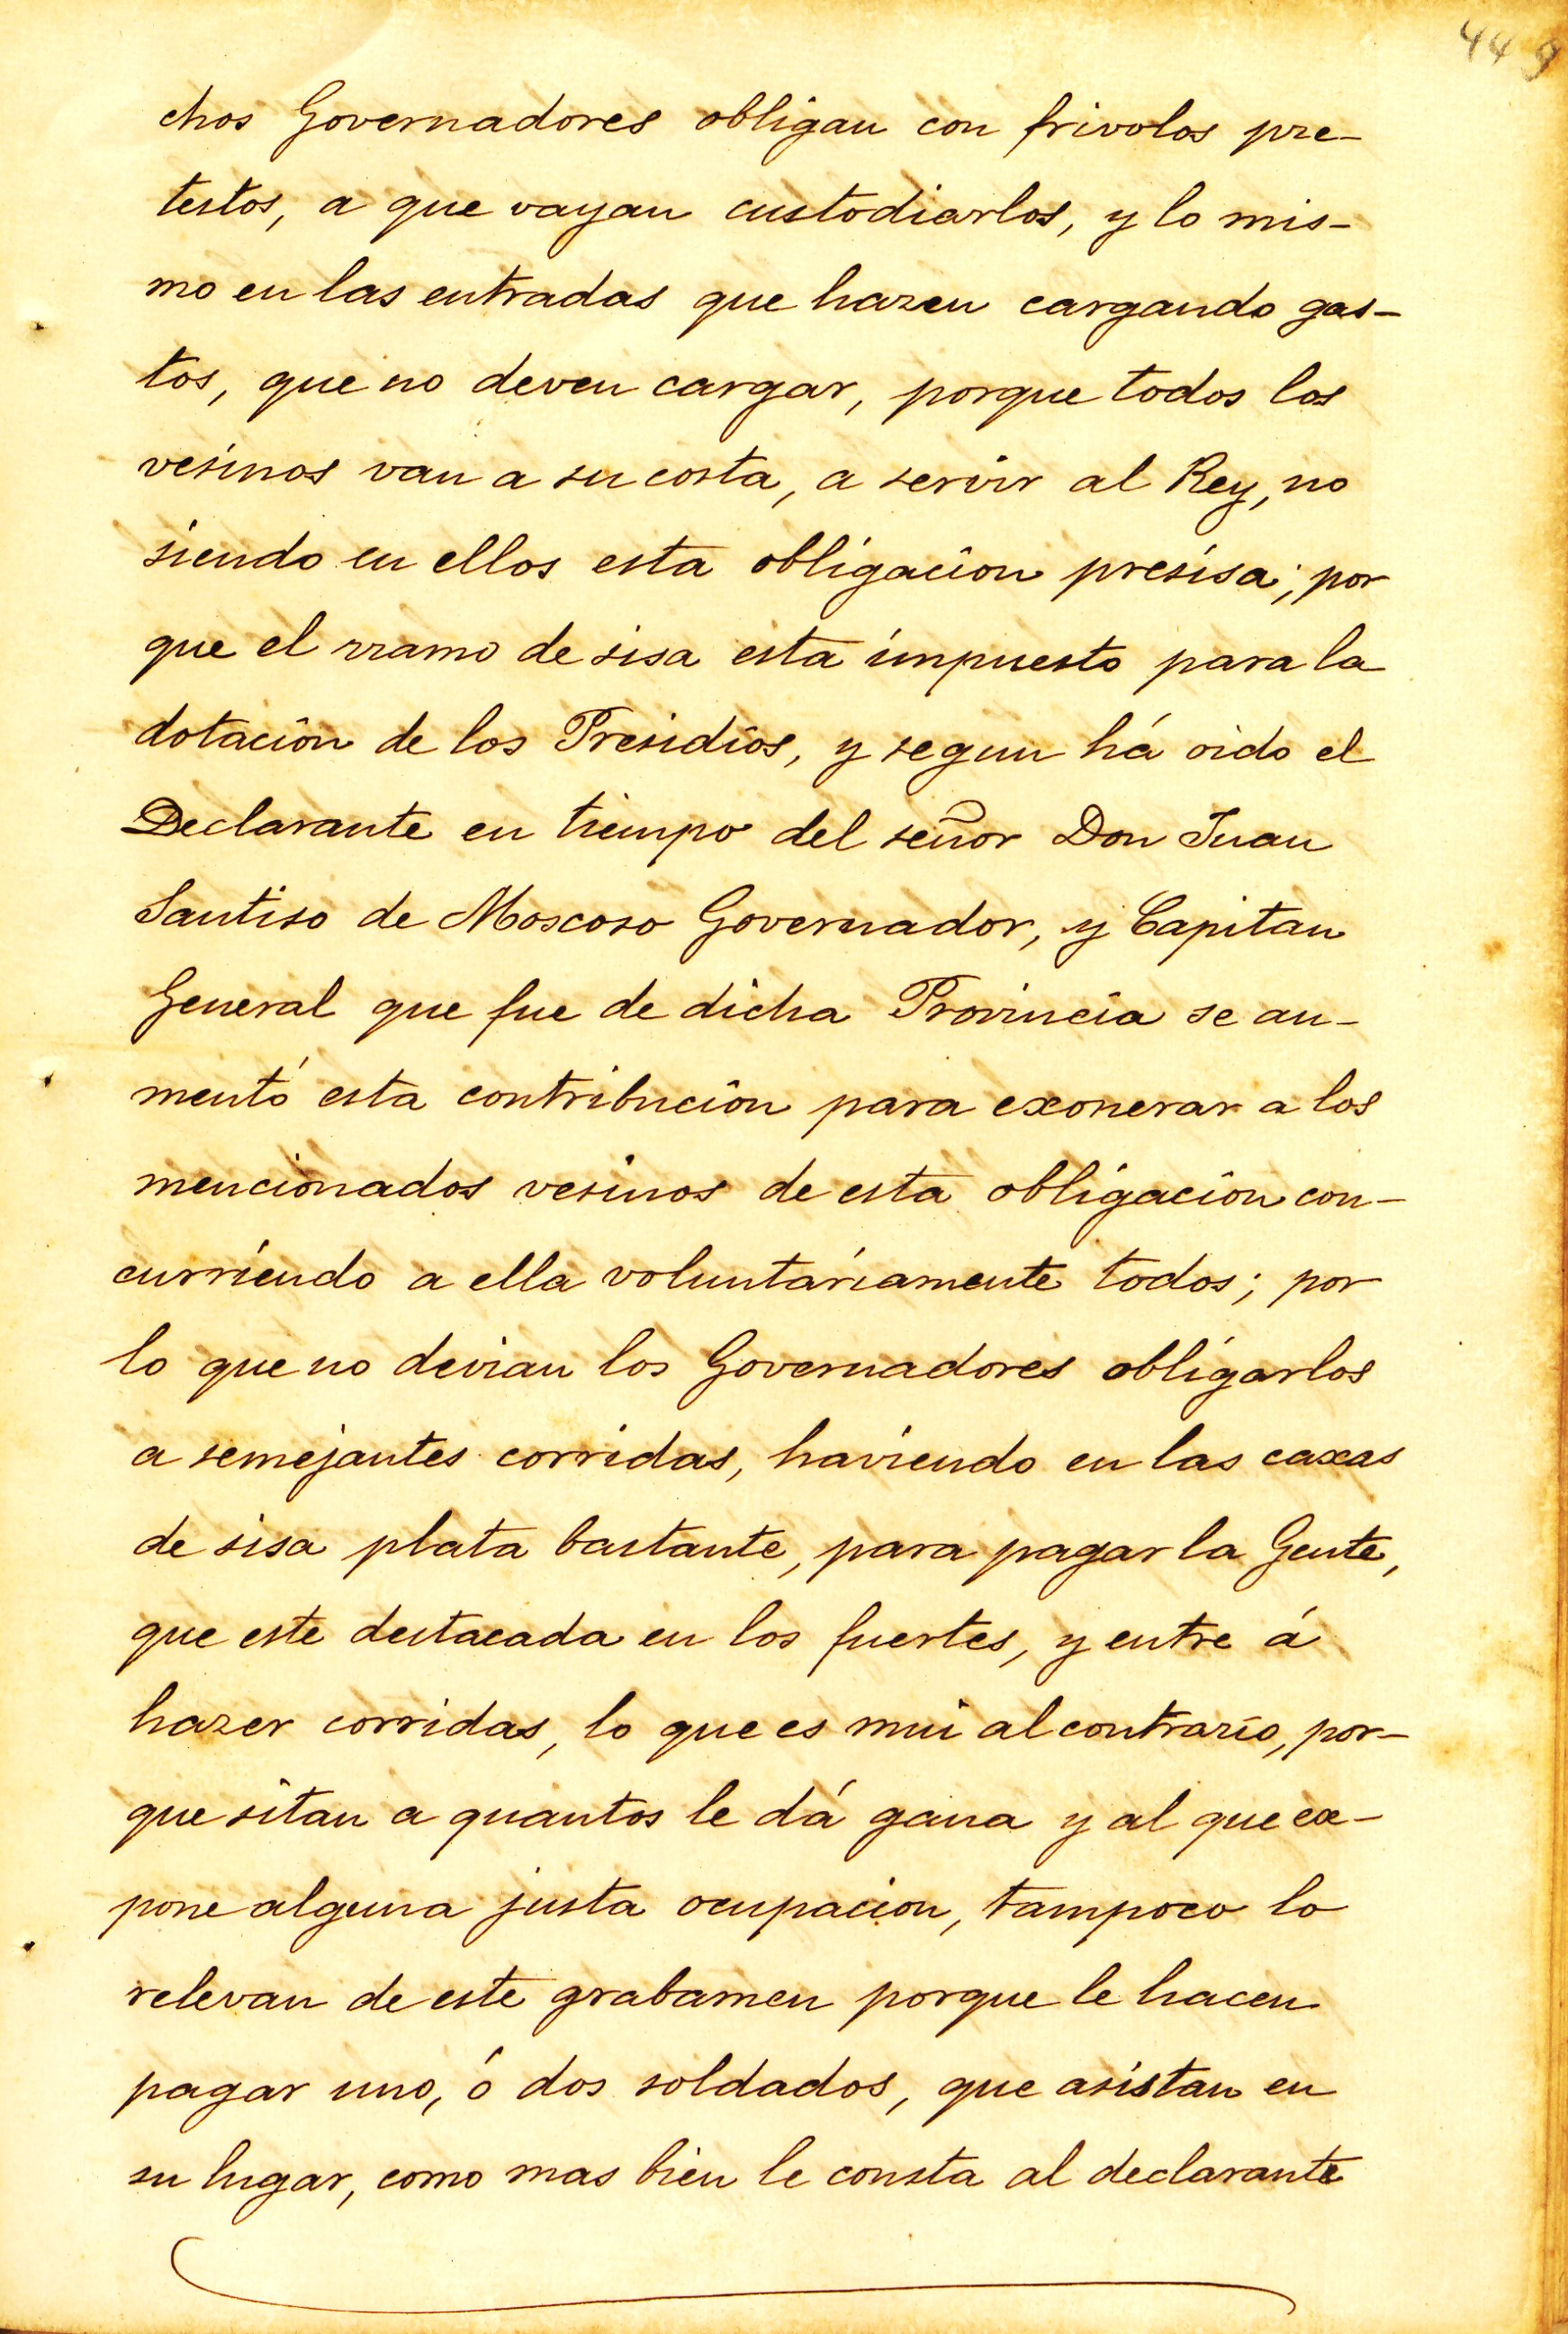 449
chos Governadores obligan con frivolos pre-
testos, a que vayan custodiarlos, y lo mis-
mo en las entradas que hazen cargando gas-
tos, que no deven cargar, porque todos los
vesinos van a su costa, a servir al Rey, no
siendo en ellos esta obligacion presisa; por
que el rramo de sisa esta impuesto para la
dotacion de los Presidios, y segun há oido el
Declarante en tiempo del señor Don Juan
Santiso de Moscoso Governador, y Capitan
General que fue de dicha Provincia se au-
mentó esta contribucion para exonerar a los
mencionados vesinos de esta obligacion con-
curriendo a ella voluntariamente todos; por
lo que no devian los Governadores obligarlos
a semejantes corridas, haviendo en las caxas
de sisa plata bastante, para pagar la Gente,
que este destacada en los fuertes, y entre á
hazer corridas, lo que es mui al contrario, por-
que sitan a quantos le dá gana y al que ex-
pone alguna justa ocupacion, tampoco lo
relevan de este grabamen porque le hacen
pagar uno, ó dos soldados, que asistan en
su lugar, como mas bien le consta al declarante